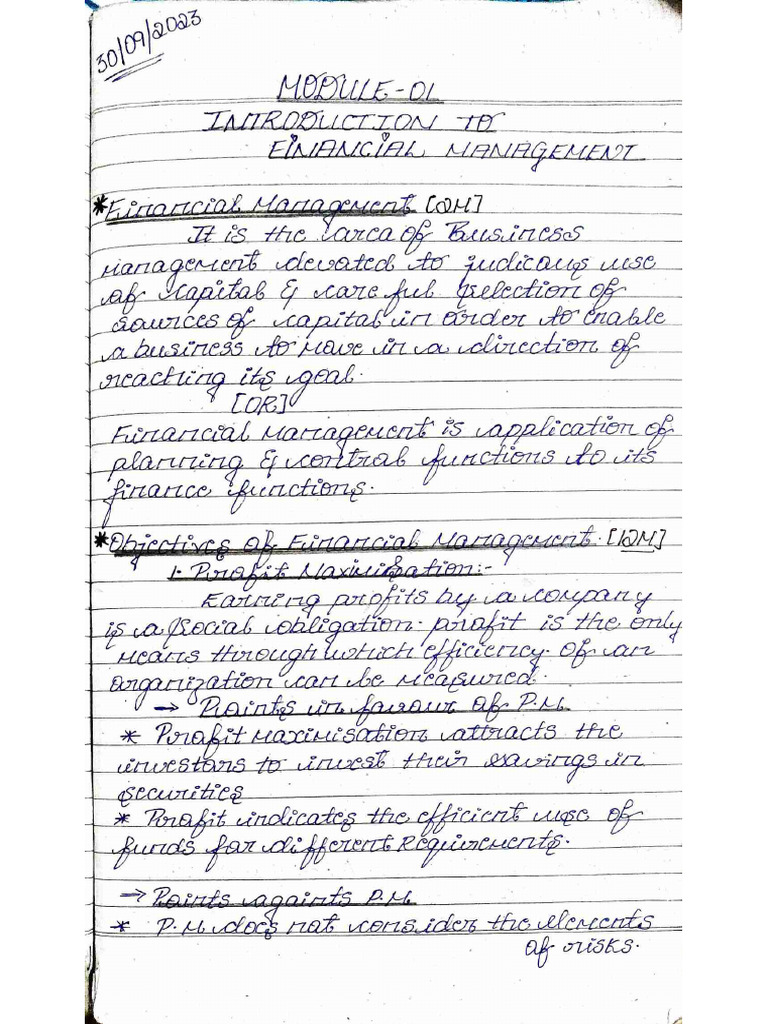 30/09/2023
MODULE-01
INTRODUCTION TO
FINANCIAL MANAGEMENT
*Financial Management [2M]
It is the area of Business
management devoted to judicious use
of capital & careful selection of
sources of capital in order to enable
a business to move in a direction of
reaching its goal.
[OR]
Financial Management is application of
planning & control functions to its
finance functions.
*Objectives of Financial Management. [12M]
1. Profit Maximisation:-
Earning profits by a company
is a social obligation. profit is the only
means through which efficiency of an
organization can be measured.
→ Points in favour of P.M.
* Profit maximisation attracts the
investors to invest their savings in
securities
* Profit indicates the efficient use of
funds for different Requirements.
→ Points againts P.M.
* P.M. does not consider the elements
of risks.